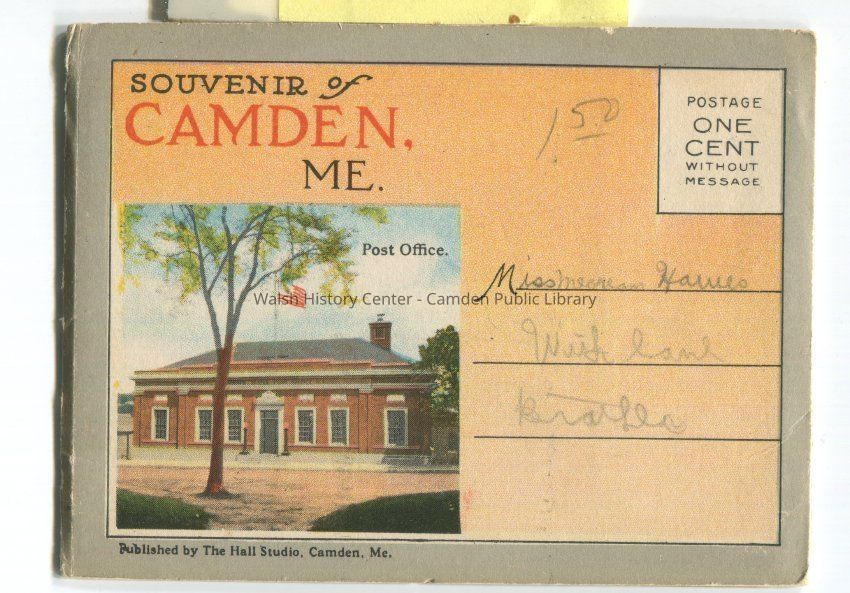 SOUVENIR of
CAMDEN,
ME.
1.50
POSTAGE
ONE
CENT
WITHOUT
MESSAGE
Post Office.
Miss Haines
Walsh History Center - Camden Public Library
With Love
Published by The Hall Studio, Camden, Me.